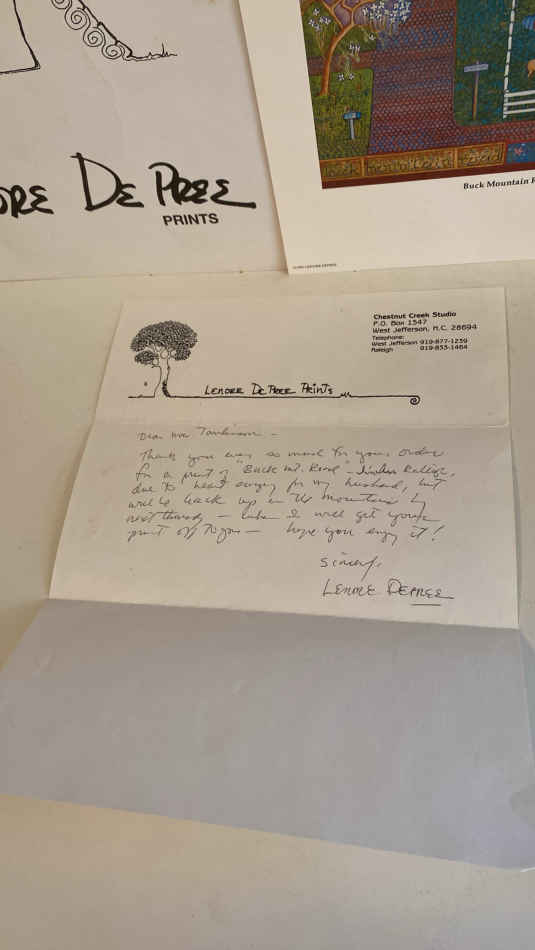 ORE DE PREE
PRINTS
Buck Mountain R
Chestnut Creek Studio
P.O. Box 1547
West Jefferson, N.C. 28694
Telephone:
West Jefferson 919-877-1239
Raleigh 919-855-1464
LENORE DE PREE PRINTS
Dear Mrs Tomlinson -
Thank you very so much for your order
for a print of "Buck Mt. Road" - in Raleigh,
due to heart surgery for my husband, but
will be back up in the mountains by
next thursday - when I will get your
print off to you - hope you enjoy it!
Sincerely,
LENORE DEPREE